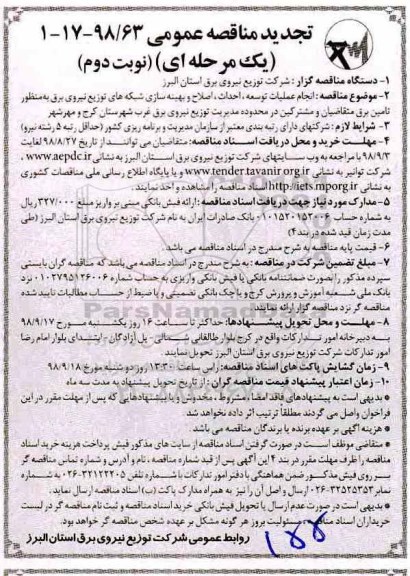 تجدید مناقصه عمومی ۹۸/۶۳-۱۷-۱
(یک مرحله ای) (نوبت دوم)
۱- دستگاه مناقصه گزار : شرکت توزیع نیروی برق استان البرز
۲- موضوع مناقصه : انجام عملیات توسعه ، احداث ، اصلاح و بهینه سازی شبکه های توزیع نیروی برق به منظور
تامین برق متقاضیان و مشترکین در محدوده مدیریت توزیع نیروی برق غرب شهرستان کرج و مهرشهر
۳- شرایط لازم : شرکتهای دارای رتبه بندی معتبر از سازمان مدیریت و برنامه ریزی کشور (حداقل رتبه ۵ رشته نیرو)
۴- مهلت خرید و محل دریافت اسناد مناقصه: متقاضیان می توانند از تاریخ ۹۸/۸/۲۷ لغایت
۹۸/۹/۳ با مراجعه به وب سایتهای شرکت توزیع نیروی برق استان البرز به نشانی www.aepdc.ir ،
شرکت توانیر به نشانی www.tender.tavanir.org.ir و یا پایگاه اطلاع رسانی ملی مناقصات کشوری
به نشانی http://iets.mporg.ir اسناد مناقصه را مشاهده و اخذ نمایند .
۵- مدارک مورد نیاز جهت دریافت اسناد مناقصه : ارائه فیش بانکی مبنی بر واریز مبلغ ۳۲۷/۰۰۰ ریال
به شماره حساب ۰۱۰۱۵۲۰۱۵۲۰۰۶ بانک صادرات ایران به نام شرکت توزیع نیروی برق استان البرز (طی
مدت زمان قید شده در بند ۴)
۶- قیمت پایه مناقصه به شرح مندرج در اسناد مناقصه می باشد .
۷- مبلغ تضمین شرکت در مناقصه : به شرح مندرج در اسناد مناقصه می باشد که مناقصه گران بایستی
سپرده مذکور را بصورت ضمانتنامه بانکی یا فیش بانکی واریزی به حساب شماره ۰۱۰۲۷۹۵۱۳۶۰۰۶ نزد
بانک ملی شعبه آموزش و پرورش کرج و یا چک بانکی تضمینی و یا ضبط از حساب مطالبات تایید شده
مناقصه گر نزد مناقصه گزار ارائه نمایند .
۸- مهلت و محل تحویل پیشنهادها : حداکثر تا ساعت ۱۶ روز یکشنبه مورخ ۹۸/۹/۱۷
به دبیرخانه امور تدارکات واقع در کرج بلوار طالقانی شمالی - پل آزادگان - ابتدای بلوار امام رضا
امور تدارکات شرکت توزیع نیروی برق استان البرز تحویل نمایند .
۹- زمان گشایش پاکت های اسناد مناقصه : راس ساعت ۱۳:۳۰ روز دوشنبه مورخ ۹۸/۹/۱۸
۱۰- زمان اعتبار پیشنهاد قیمت مناقصه گران : از تاریخ تحویل پیشنهاد به مدت سه ماه
● بدیهی است به پیشنهادهای فاقد امضاء ، مشروط ، مخدوش و یا پیشنهادهایی که پس از مهلت مقرر در این
فراخوان واصل می گردند مطلقاً ترتیب اثر داده نخواهد شد
● هزینه آگهی بر عهده برنده یا برندگان مناقصه می باشد .
● متقاضی موظف است در صورت گرفتن اسناد مناقصه از سایت های مذکور فیش پرداخت هزینه خرید اسناد
مناقصه را ظرف مهلت مقرر در بند ۴ این آگهی پس از قید شماره مناقصه ، نام و آدرس و شماره تماس مناقصه گر
بر روی فیش مذکور ضمن هماهنگی با دفتر امور تدارکات با شماره تلفن ۳۲۱۲۲۲۰۵-۰۲۶ به شماره
نمابر ۳۲۵۲۵۳۵۳-۰۲۶ ارسال و اصل آن را نیز به همراه مدارک پاکت (ب) اسناد مناقصه ارسال نماید .
● بدیهی است در صورت عدم ارسال یا تحویل فیش بانکی خرید اسناد مناقصه و ثبت نام مناقصه گر در لیست
خریداران اسناد مناقصه ، مسئولیت بروز هر گونه مشکل بر عهده شخص مناقصه گر خواهد بود .
روابط عمومی شرکت توزیع نیروی برق استان البرز